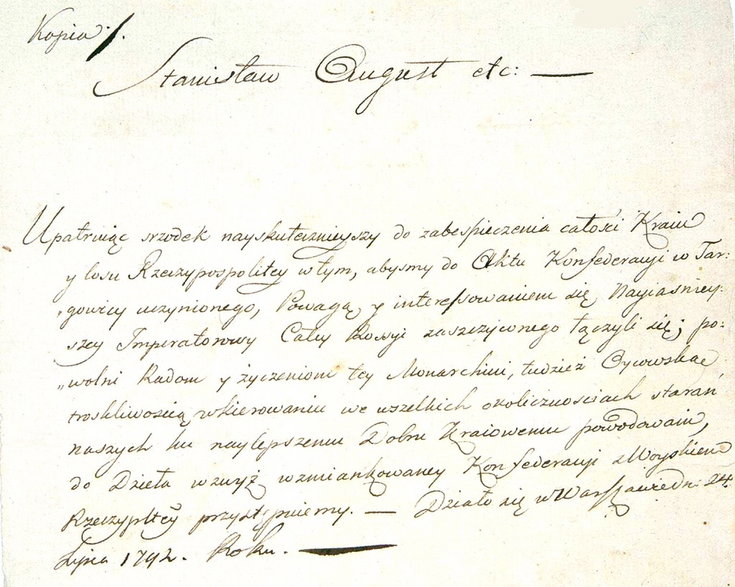 Kopia
Stanisław August etc: —
Upatruiąc srzodek nayskutecznieyszy do zabespieczenia całości Kraiu
y losu Rzeczypospolitey w tym, abysmy do Aktu Konfederacyi w Tar:
„gowicy uczynionego, Powagą y interessowaniem się Nayiaśniey:
szey Imperatorowy Całey Rossyi zaszczyconego łączyli się; po„
„wolni Radom y życzeniom tey Monarchini, tudzież Oycowską
troskliwością w kierowaniu we wszelkich okolicznościach starań
naszych ku naylepszemu Dobru Kraiowemu powodowani,
do Dzieła wzwyż wzmiankowaney Konfederacyi z Woyskiem
Rzeczypltey przystępuiemy. — Działo się w Warszawie dn: 24.
Lipca 1792. Roku. —